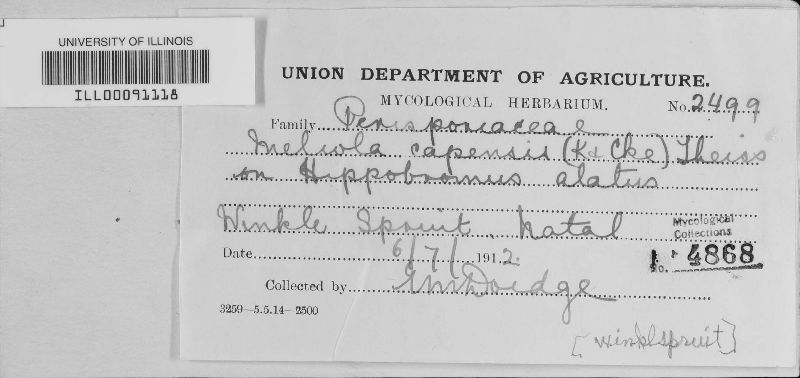 UNIVERSITY OF ILLINOIS
ILL00091118
UNION DEPARTMENT OF AGRICULTURE.
MYCOLOGICAL HERBARIUM. No. 2499
Family Perisporiaceae
Meliola capensis (K & Cke) Theiss
on Hippobromus alatus
Winkle Spruit. Natal
Mycological
Collections
Date 6/7/1912.
No. 4868
Collected by EMDoidge
3259—5.5.14—2500
[Winklespruit]